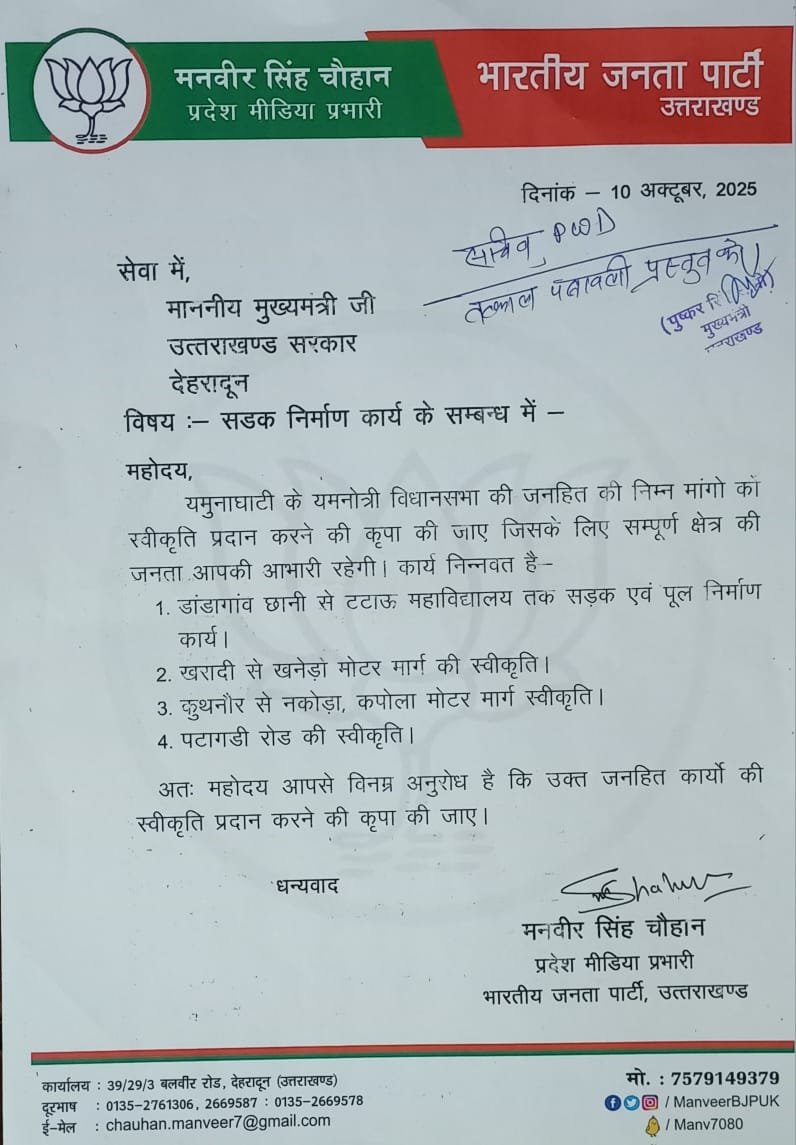 मनवीर सिंह चौहान
प्रदेश मीडिया प्रभारी
भारतीय जनता पार्टी
उत्तराखण्ड
दिनांक – 10 अक्टूबर, 2025
सचिव, PWD
तत्काल पत्रावली प्रस्तुत करें।
(पुष्कर सिं
मुख्यमंत्री
उत्तराखण्ड
सेवा में,
माननीय मुख्यमंत्री जी
उत्तराखण्ड सरकार
देहरादून
विषय :– सडक निर्माण कार्य के सम्बन्ध में –
महोदय,
यमुनाघाटी के यमनोत्री विधानसभा की जनहित की निम्न मांगो को
स्वीकृति प्रदान करने की कृपा की जाए जिसके लिए सम्पूर्ण क्षेत्र की
जनता आपकी आभारी रहेगी। कार्य निन्नवत है–
1. डांडागांव छानी से टटाऊ महाविद्यालय तक सड़क एवं पूल निर्माण
कार्य।
2. खरादी से खनेड़ा मोटर मार्ग की स्वीकृति।
3. कुथनौर से नकोड़ा, कपोला मोटर मार्ग स्वीकृति।
4. पटागडी रोड की स्वीकृति।
अतः महोदय आपसे विनम्र अनुरोध है कि उक्त जनहित कार्यो की
स्वीकृति प्रदान करने की कृपा की जाए।
धन्यवाद
मनवीर सिंह चौहान
प्रदेश मीडिया प्रभारी
भारतीय जनता पार्टी, उत्तराखण्ड
कार्यालय : 39/29/3 बलवीर रोड, देहरादून (उत्तराखण्ड)
दूरभाष : 0135-2761306, 2669587 : 0135-2669578
ई-मेल : chauhan.manveer7@gmail.com
मो. : 7579149379
/ ManveerBJPUK
/ Manv7080